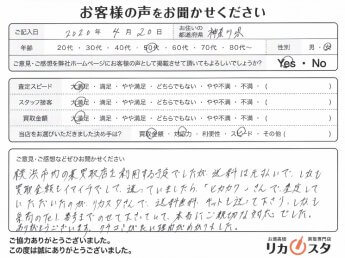 お客様の声をお聞かせください
ご記入日 2020年 4月 20日 お住いの都道府県 神奈川県
年齢 20代・30代・40代・50代・60代・70代・80代 性別 男・女
ご意見・ご感想を弊社ホームページにお客様の声として掲載させて頂いてもよろしいでしょうか? Yes・No
査定スピード 大満足・満足・やや満足・どちらでもない・やや不満・不満・( )
スタッフ接客 大満足・満足・やや満足・どちらでもない・やや不満・不満・( )
買取金額 大満足・満足・やや満足・どちらでもない・やや不満・不満・( )
当店をお選びいただきました決め手は? 買取金額・対応力・利便性・スピード・その他( )
ご意見・ご感想などぜひお聞かせください
横浜市内の某買取店を利用する予定でしたが送料は元払いで、しかも
買取金額もイマイチでして、迷っていましたら「ヒカカク」さんで査定して
いただいたのが リカスタさんで、送料無料、キットも送って下さり、しかも
本当に親切な対応でした。
ありがとうございます。
ご協力ありがとうございました。
この度は誠にありがとうございました。
お酒高額買取専門店
リカスタ